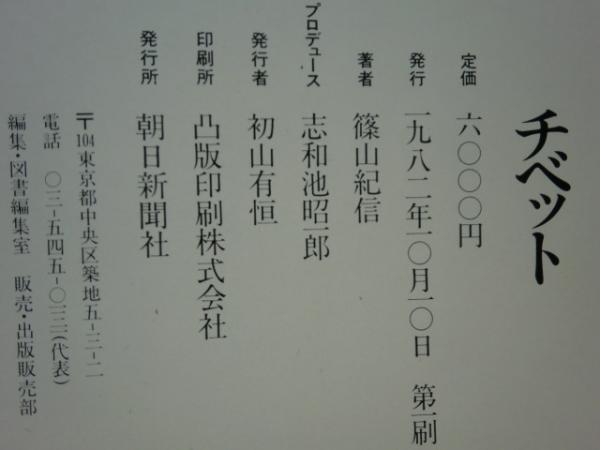 チベット
定価 六〇〇〇円
発行 一九八二年一〇月一〇日 第一刷
著者 篠山紀信
プロデュース 志和池昭一郎
発行者 初山有恒
印刷所 凸版印刷株式会社
発行所 朝日新聞社
〒104東京都中央区築地五-三-二
電話 〇三-五四五-〇一三一(代表)
編集・図書編集室 販売・出版販売部